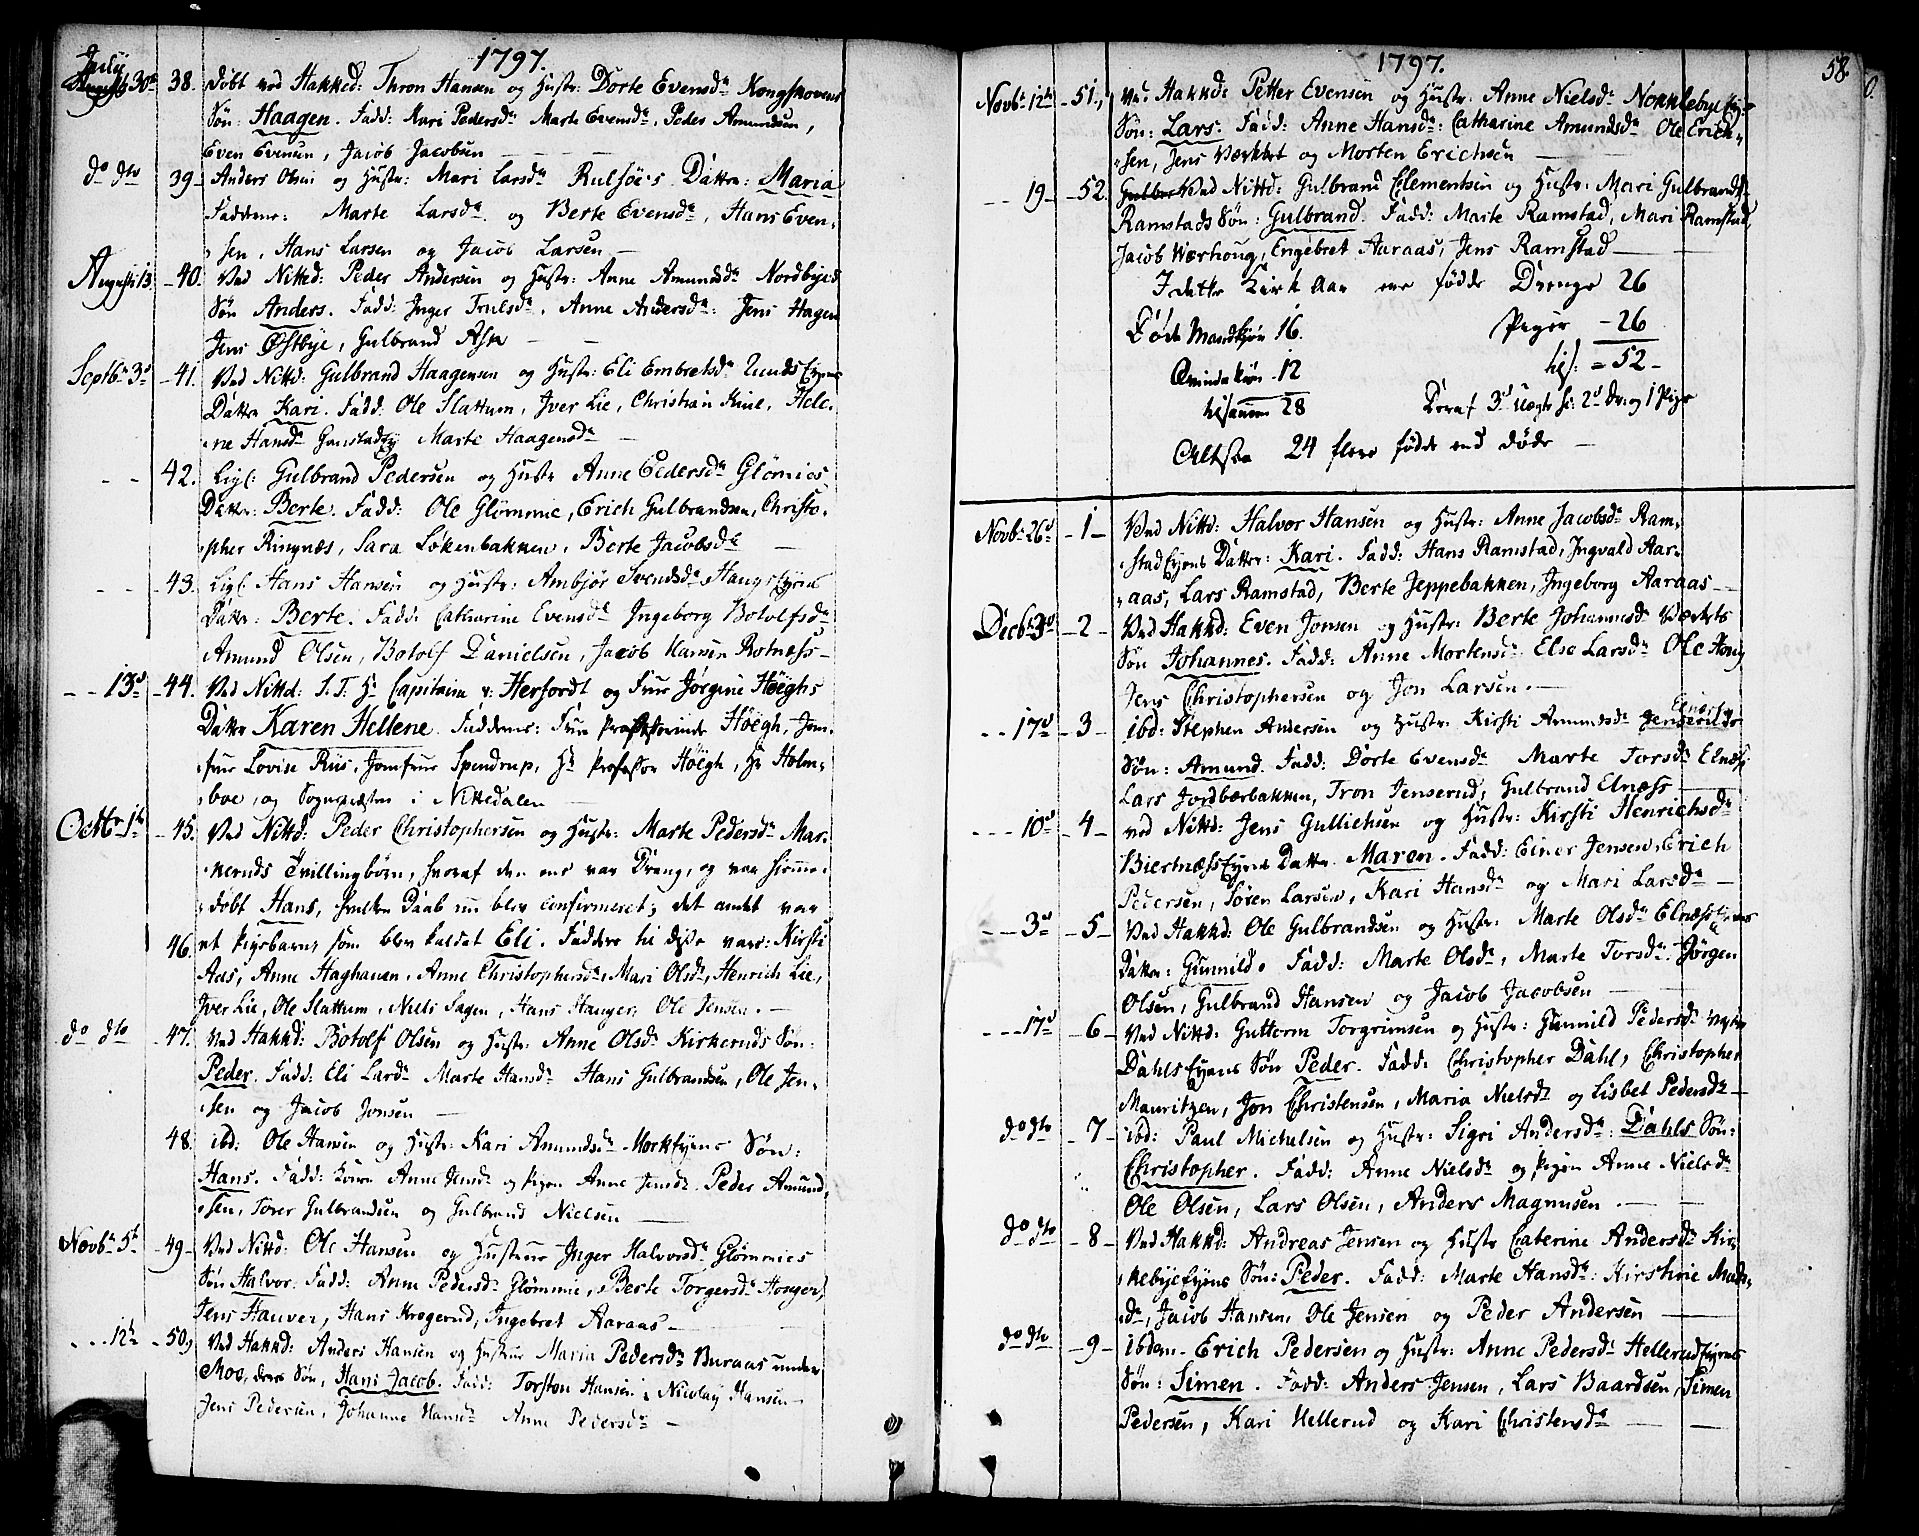 1797.
July
30te 38. døbt ved Hakked: Thron Hansen og Hustr: Dorte Evensdr Kongskovens
Søn: Haagen. Fadd: Mari Pedersdr Marte Evensdr, Peder Amundsen,
Even Evensen, Jacob Jacobsen
do dto 39 Anders Olsen og Hustr: Mari Larsdr Rulsöes Datter: Maria
Faddere: Marte Larsdr og Berte Evensdr, Hans Even-
sen, Hans Larsen og Jacob Larsen
August 13. 40. Ved Nitted: Peder Andersen og Hustr: Anne Amundsdr Nordbyed
Søn Anders. Fadd: Inger Truelsdr, Anne Andersdr: Jens Hagen
Jens Østbye, Gulbrand Aser
Septbr 3d 41. Ved Nittd: Gulbrand Haagensen og Hustr: Eli Embretsdr Lunds Eyens
Datter Kari. Fadd: Ole Slattum, Iver Lie, Christian Kiul, Hele-
ne Hansdr Marte Haagensdr
42. Ligl: Gulbrand Pedersen og Hustr Anne Pedersdr Glömmes
Datter: Berte. Fadd: Ole Glömmie, Erich Gulbrandsen, Christo-
pher Ringnæs, Sara Løkenbakken, Berte Jacobsdr
43. Ligl: Hans Hansen og Hustr: Ambjør Svendsdr Haugs Eyens
Datter: Berte. Fadd: Catharine Evensdr Ingeborg Botolfsdr
Amund Olsen, Botolf Danielsen, Jacob Hansen Rotnæss
13d 44. Ved Nittd: S.T. Hr Capitain v: Herfordt og Frue Jørgine Høeghs
Datter Karen Hellene. Faddere: Frue Professorinde Høegh, Jom-
frue Lovise Riis, Jomfrue Spendrup, Hr Professor Høegh, Hr Holm-
boe, og Sognepræsten i Nittedalen
Octbr 1te 45. Ved Nittd: Peder Christophersen og Hustr: Marte Pedersdr Mar-
keruds Tvillingbørn, hvoraf den ene var Dreng, og var hjemme-
døbt Hans, hvilken Daab nu blev confirmeret; det andet var
46. et Pigebarn, som blev kaldet Eli. Faddere til disse vare: Kirsti
Aas, Anne Haghauen, Anne Christophersdr, Mari Olsdr, Henrich Lie,
Iver Lie, Ole Slattum, Niels Sagen, Hans Hauger, Ole Jensen.
do dto 47. Ved Hakkd: Botolf Olsen og Hustr: Anne Olsdr Kirkeruds Søn:
Peder. Fadd: Eli Larsdr Marte Hansdr Hans Gulbrandsen, Ole Jen-
sen og Jacob Jonsen
48. ibd: Ole Hansen og Hustr: Kari Amundsdr Morkeyens Søn:
Hans. Fadd: Konen Anne Jensdr og Pigen Anne Jensdr Peder Amund-
sen, Torer Gulbrandsen og Gulbrand Nielsen
Novbr 5te 49 Ved Nittd: Ole Hansen og Hustrue Inger Halvorsdr Glömmies
Søn Halvor. Fadd: Anne Pedersdr Glömmie, Berte Torgersdr Houger,
Jens Hauver, Hans Krogerud, Ingebret Aaraas
12te 50, Ved Hakkd: Anders Hansen og Hustrue Maria Pedersdr Buraas under
Moe, deres Søn, Hans Jacob. Fadd: Torsten Hansen, Nicolay Hansen
Jens Pedersen, Johanne Hansdr Anne Pedersdr
1797.
58
Novbr 12te 51, Ved Hakkd: Petter Evensen og Hustr: Anne Nielsdr Nokklebye
Søn: Lars. Fadd: Anne Hansdr: Catharine Amundsdr Ole Erich-
sen, Jens Værkket og Morten Erichsen
19 52. Ved Nittd: Gulbrand Clementsen og Hustr: Mari Gulbrandsdr
Ramstads Søn: Gulbrand. Fadd: Marte Ramstad, Mari Ramstad,
Jacob Wærhoug, Engebret Aaraas, Jens Ramstad
I dette Kirke Aar ere fødde Drenge 26
Døde Mandkjøn 16. Piger 26
Qvindekjøn 12 tils: = 52
tilsammen 28 Deraf 3de Uægte s: 2de Dr: og 1 Pige
Altsaa 24 flere fødde end døde
Novbr 26d 1 Ved Nittd: Halvor Hansen og Hustr: Anne Jacobsdr Ram-
stad Eyens Datter: Kari. Fadd: Hans Ramstad, Ingvald Aar-
aas, Lars Ramstad, Berte Jeppebakken, Ingeborg Aaraas
Decbr 3d 2 Ved Hakkd: Even Jonsen og Hustr: Berte Johannesdr Værkets
Søn Johannes. Fadd: Anne Mortensdr: Else Larsdr Ole Houg
Jens Christophersen og Jon Larsen.
17d 3 ibd: Stephen Andersen og Hustr: Kirsti Amundsdr Jenseruds
Søn: Amund. Fadd: Dorte Evensdr Marte Torsdr Elnæss
Lars Jordbærbakken, Tron Jenserud, Gulbrand Elnæss
10d 4 ved Nittd: Jens Gullichsen og Hustr: Kirsti Henrichsdr
Biertnæss Eyens Datter Maren. Fadd: Einer Jensen, Erich
Pedersen, Søren Larsen, Kari Hansdr og Mari Larsdr
3d 5 Ved Hakkd: Ole Gulbrandsen og Hustr: Marte Olsdr Elnæss
Datter: Gunnild. Fadd: Marte Olsdr, Marte Torsdr. Jørgen
Olsen, Gulbrand Hansen og Jacob Jacobsen
17d 6 Ved Nittd: Guttorm Torgrimsen og Hustr: Gunnild Pedersdr
Dahls Eyens Søn Peder. Fadd: Christopher Dahl, Christopher
Mauritzen, Jon Christensen, Maria Nielsdr og Lisbet Pedersdr
do dto 7 ibd: Paul Michelsen og Hustr: Sigri Andersdr: Dahls Søn:
Christopher. Fadd: Anne Nielsdr og Pigen Anne Nielsdr
Ole Olsen, Lars Olsen, Anders Magnusen.
do dto 8 Ved Hakkd: Andreas Jensen og Hustr Caterine Andersdr Kir-
kebye Eyens Søn: Peder. Fadd: Marte Hansdr: Kirstine Mads-
dr, Jacob Hansen, Ole Jensen og Peder Andersen
do dto 9 ibdem. Erich Pedersen og Hustr: Anne Pedersdr Hellerud Eyens
Søn: Simen. Fadd: Anders Jensen, Lars Baardsen, Simen
Pedersen, Kari Hellerud og Kari Christensdr